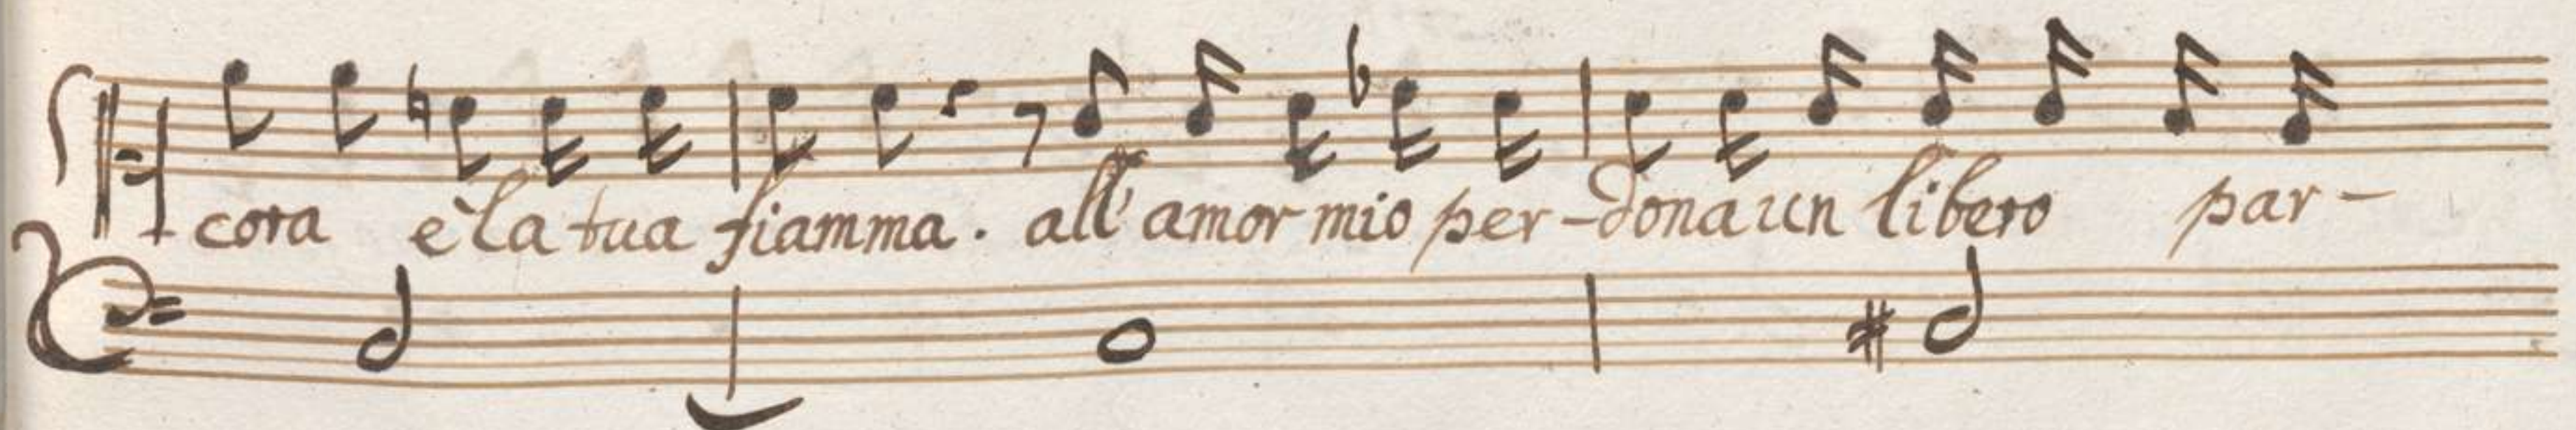 cora è la tua fiamma. all' amor mio per-dona un libero par-